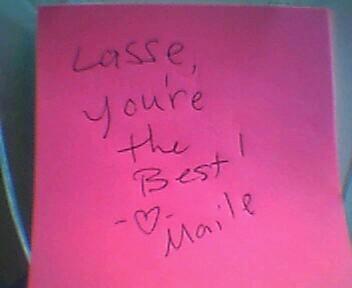 Lasse,
you're
the
Best!
-♡-
Maile